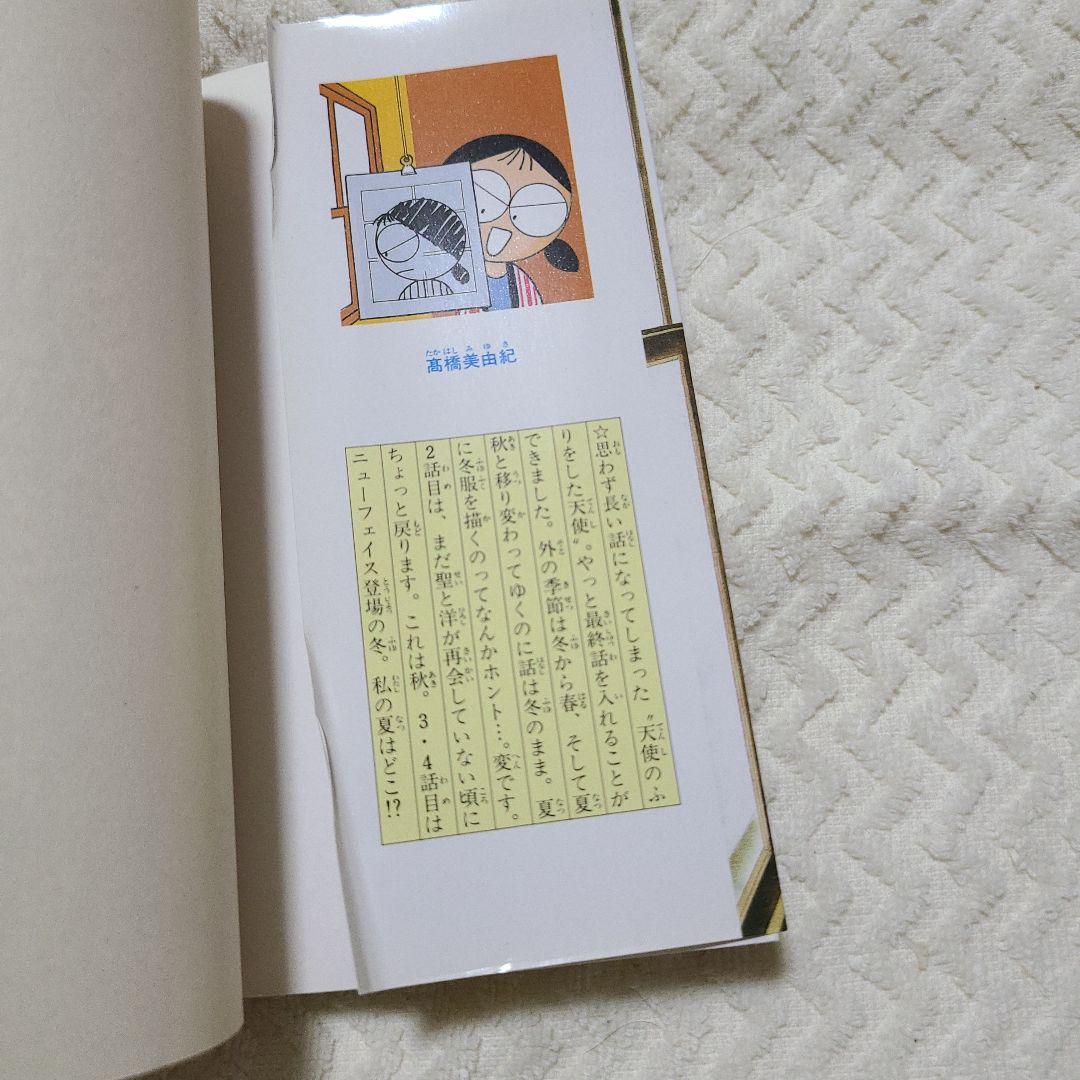 髙橋美由紀
たかはしみゆき
☆思わず長い話になってしまった〝天使のふ
りをした天使〟。やっと最終話を入れることが
できました。外の季節は冬から春、そして夏
秋と移り変わってゆくのに話は冬のまま。夏
に冬服を描くのってなんかホント…。変です。
2話目は、まだ聖と洋が再会していない頃に
ちょっと戻ります。これは秋。3・4話目は
ニューフェイス登場の冬。私の夏はどこ!?